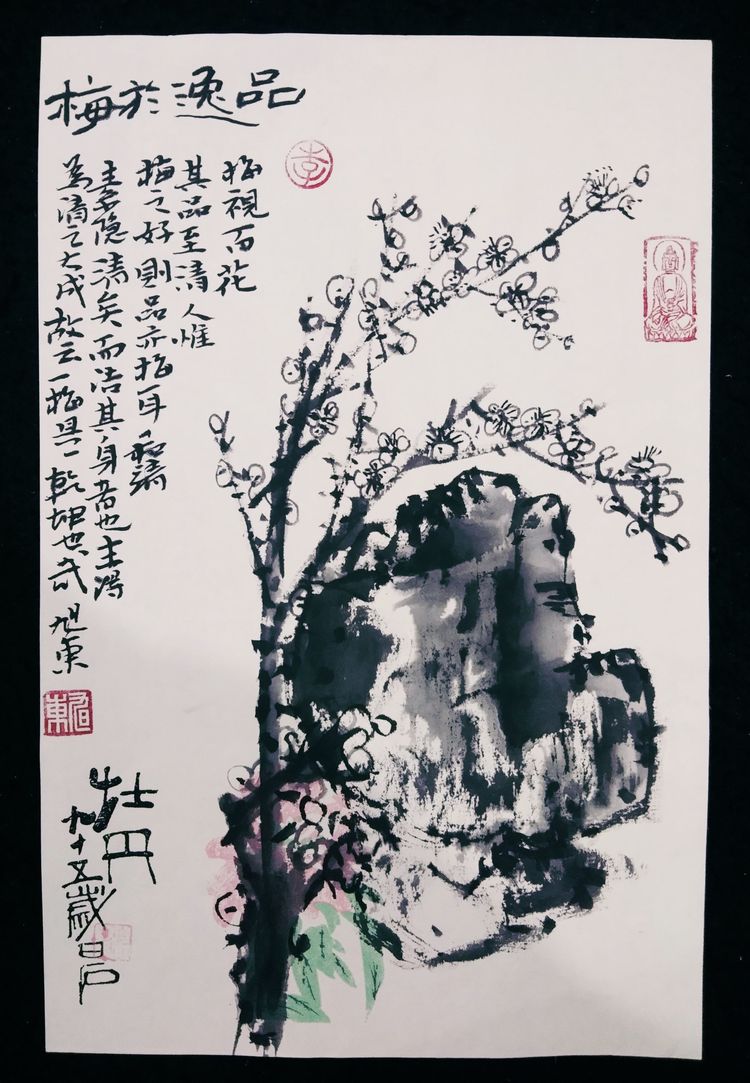 梅於逸品
梅視百花
其品至清人惟
梅之好則品亦梅耳和靖
隐清矣而洁其身者也
為清之大成故云一梅具一乾坤也 旭東
李
旭東
牡丹
九十五歲